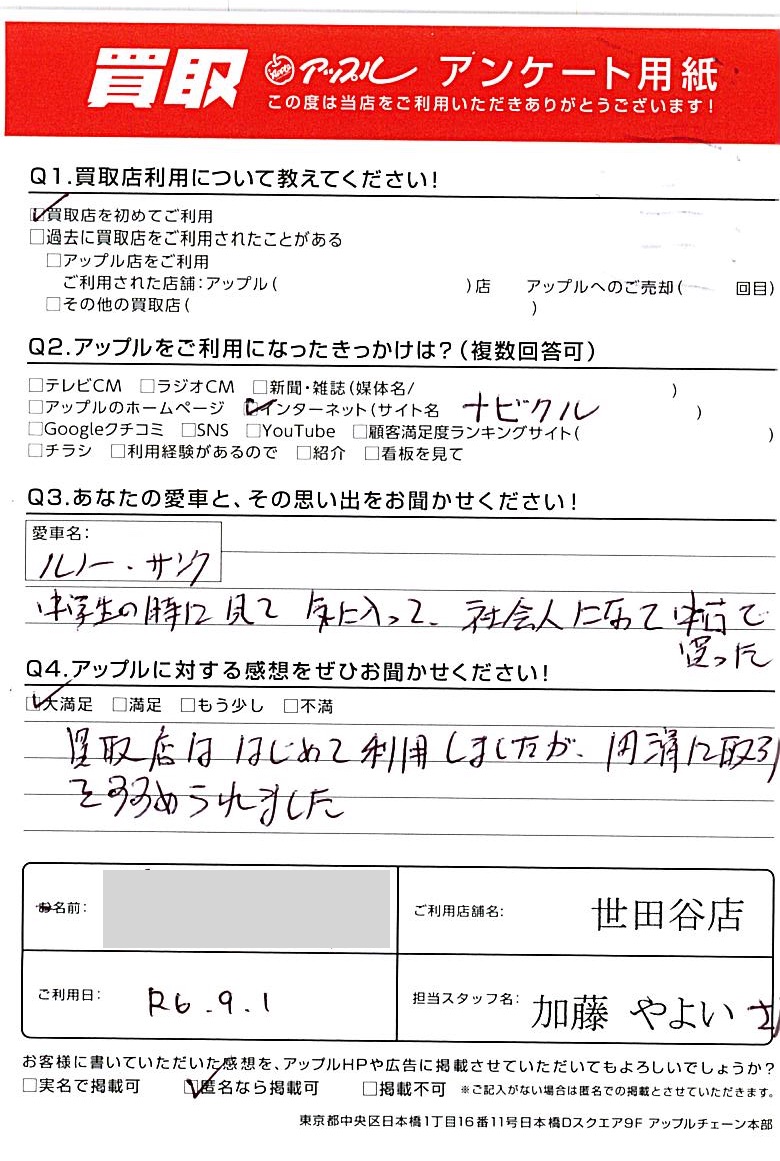 買取 アップル アンケート用紙
この度は当店をご利用いただきありがとうございます!
Q1.買取店利用について教えてください!
□買取店を初めてご利用
□過去に買取店をご利用されたことがある
□アップル店をご利用
ご利用された店舗:アップル( )店 アップルへのご売却( 回目)
□その他の買取店( )
Q2.アップルをご利用になったきっかけは?(複数回答可)
□テレビCM □ラジオCM □新聞・雑誌(媒体名/ )
□アップルのホームページ □インターネット(サイト名 ナビクル )
□Googleクチコミ □SNS □YouTube □顧客満足度ランキングサイト( )
□チラシ □利用経験があるので □紹介 □看板を見て
Q3.あなたの愛車と、その思い出をお聞かせください!
愛車名:
ルノー・サンク
中学生の時に見て 気に入って、社会人になって中古で
買った
Q4.アップルに対する感想をぜひお聞かせください!
□大満足 □満足 □もう少し □不満
買取店は はじめて利用しましたが、円滑に取引
をすすめられました
お名前:
ご利用店舗名: 世田谷店
ご利用日: R6.9.1
担当スタッフ名: 加藤 やよい さん
お客様に書いていただいた感想を、アップルHPや広告に掲載させていただいてもよろしいでしょうか?
□実名で掲載可 □匿名なら掲載可 □掲載不可 ※ご記入がない場合は匿名での掲載とさせていただきます。
東京都中央区日本橋1丁目16番11号日本橋Dスクエア9F アップルチェーン本部